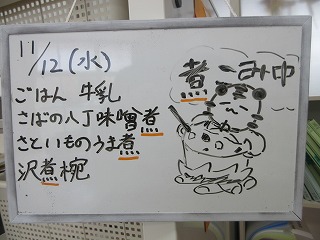 11/12(水)
ごはん 牛乳
さばの八丁味噌煮
さといものうま煮
沢煮椀
煮こみ中